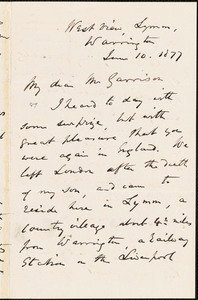 West View, Lymm,
Warrington
June 10. 1877
My dear Mr Garrison
I heard to day with
some surprize, but with
great pleasure that you
were again in England. We
left London after the death
of my son, and came to
reside here in Lymm, a
country village about 4½ miles
from Warrington, a Railway
Station in the Liverpool